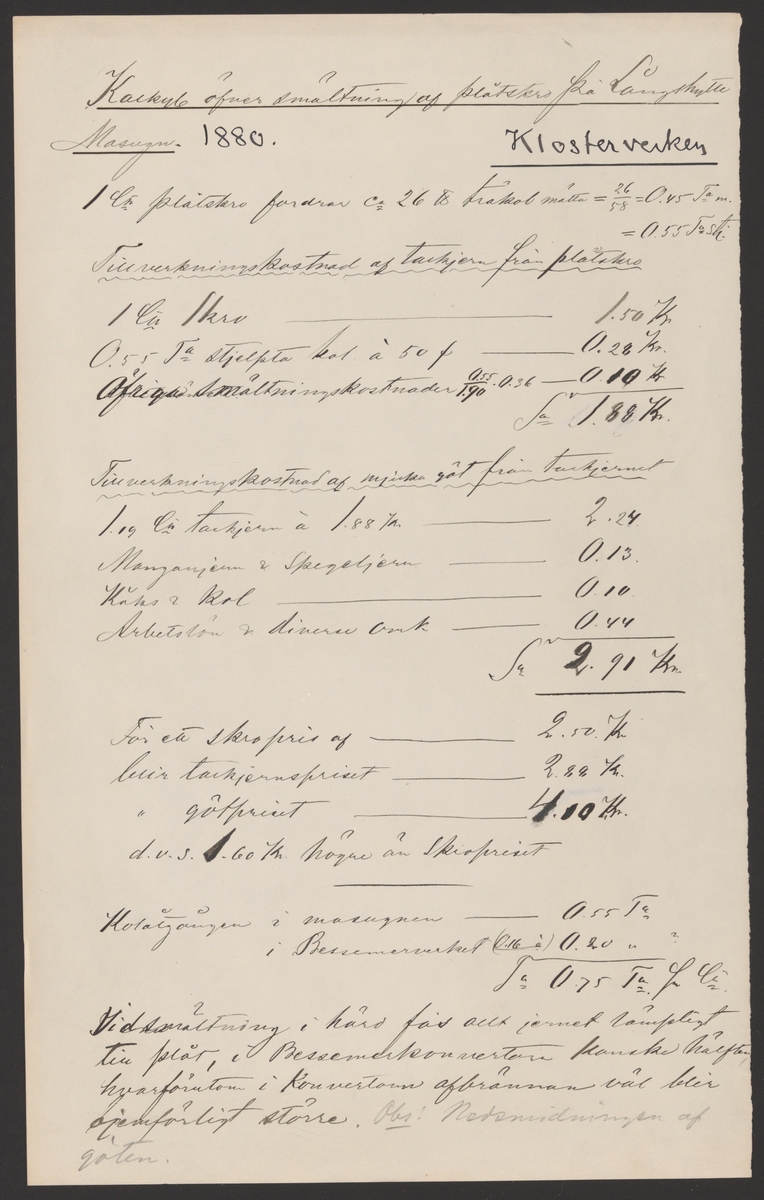 Kalkyl öfver smältning af plåtskro på Långshytte
Masugn. 1880. Klosterverken
1 Ctr plåtskro fordrar ca 26 ℔ träkol mätta = 26/58 = 0.45 Ta m.
= 0.55 Ta stj.
Tillverkningskostnad af tackjern från plåtskro
1 Ctr skro 1.50 Kr.
0.55 Ta stjelpta kol à 50 f 0.28 Kr.
Öfriga smältningskostnader 0.55/1.90 · 0.36 — 0.10 Kr
Sa 1.88 Kr.
Tillverkningskostnad af mjuka göt från tackjernet
1.19 Ctr tackjern à 1.88 Kr. 2.24
Manganjern & Spegeljern 0.13.
Koks & kol 0.10
Arbetslön & diverse omk 0.44
Sa 2.91 Kr.
För ett skropris af 2.50. Kr
blir tackjernspriset 2.88 Kr.
" götpriset 4.10 Kr.
d.v.s. 1.60 Kr. högre än Skropriset
Kolåtgången i masugnen 0.55 Ta
i Bessemerverket (0.16 à) 0.20 " ?
Sa 0.75 Ta pr Ctr.
Vid smältning i härd fås allt jernet lämpligt
till plåt, i Bessemerkonvertorn kanske hälften,
hvarförutom i Konvertorn afbrännan väl blir
ojemförligt större. Obs! Nedsmidningen af
göten.